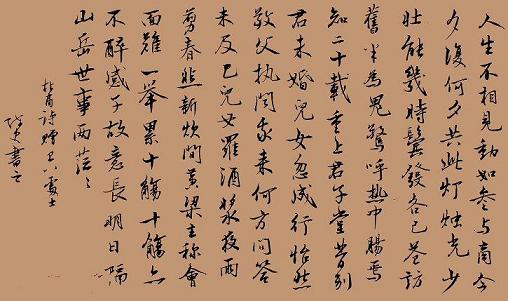 人生不相見動如參与商今
夕復何夕共此灯烛光少
壮能幾時鬓發各已苍訪
舊半為鬼驚呼热中腸焉
知二十載重上君子堂昔别
君未婚兒女忽成行怡然
敬父执问我来何方问答
未及已兒女羅酒浆夜雨
剪春韭新炊间黄梁主称會
面難一舉累十觴十觴亦
不醉感子故意長明日隔
山岳世事两茫々
杜甫诗赠卫八處士
書之